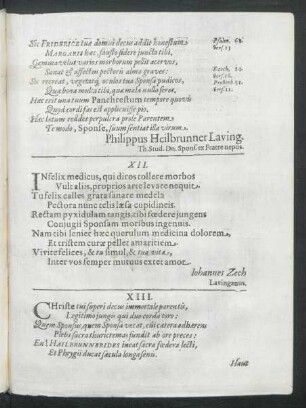 Sic FRIDERICE tuæ domui decus addit honestum
MARGARIS hæc, fausto sidere juncta tibi.
Gemma velut varios morborum pellit acervos,
Sanat & affectum pectoris alma graves:
Sic recreat, vegetatq, oculos tua Sponsa pudicos,
Qua bona multa tibi, qua mala nulla feras.
Hæc erit una tuum Panchrestum tempore quovis
Quod cordi fas est applicuisse pio.
Hæc lotum reddat perpulcra prole Parentem
Te modo, Sponse, suum sentiat illa virum.
Philippus Heilbrunner Laving.
Th. Stud. Dn. Sponsi ex Fratre nepos.
XII.
INfelix medicus, qui diros tollere morbos
Vult aliis, proprios arte levare nequit.
Tu felix calles grata sanare medela
Pectora nunc telis læsa cupidineis.
Rectam pyxidum tangis, tibi fœdere jungens
Conjugii Sponsam moribus ingenuis.
Nam tibi lenier hæc querulum medicina dolorem,
Et tristem cura pellet amaritiem.
Vivite felices, & τὰ simul, & τωα
Inter vos semper mutuus extet amor.
Iohannes Zech
Lavinganus.
XIII.
CHriste tui superi decus immortale parentis,
Legitimo jungis qui duo corda toro:
Quem Sponsus, quem Sponsa vocat, cui cætera adhærens
Plebs sacra thuricremas fundit ob ora preces:
En! HAILBRUNNERIDES ineat sacra fœdera lecti,
Et Phrygii ducat sæcula longa senis.
Haut